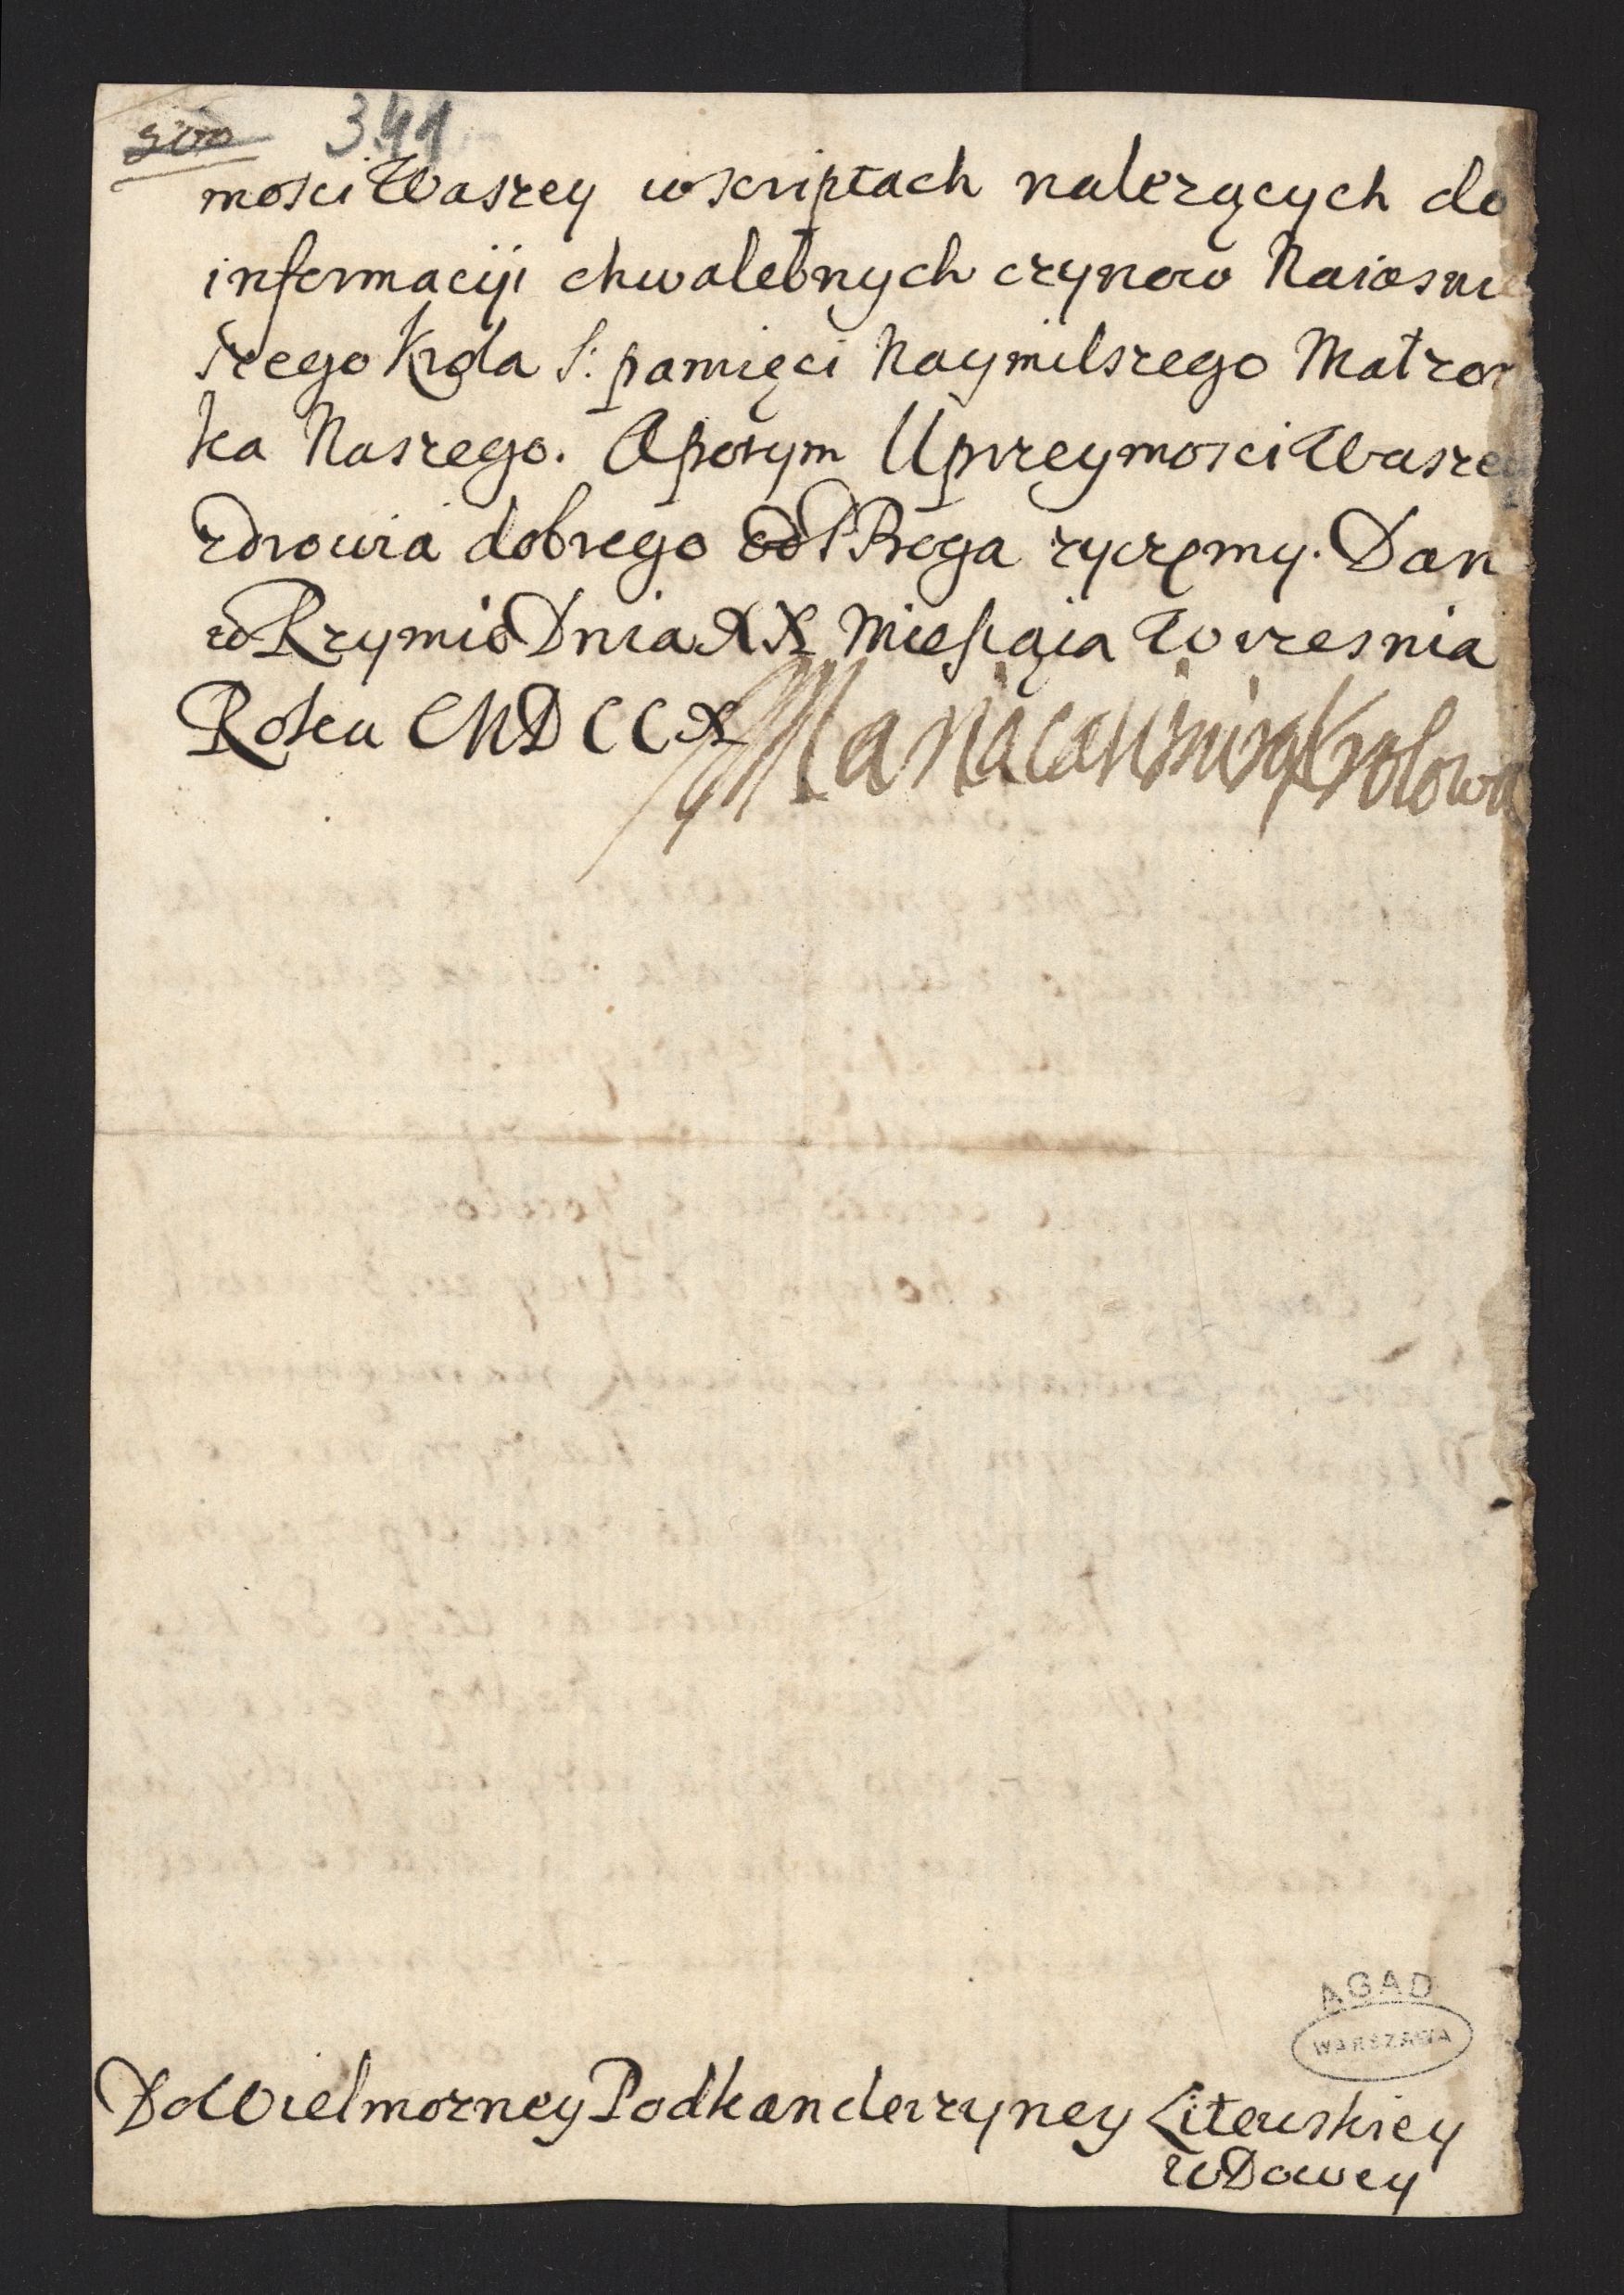 500 341
mosci Waszey w scriptach nalezących do
informacyi chwalebnych czynow Naiasnie
szego Krola S: pamięci Naymilszego Małzon
ka Naszego. A potym Uprzeymosci Waszey
zdrowia dobrego od P Boga zyczemy. Dan
w Rzymie Dnia XX Miesiąca Wrzesnia
Roku MDCCX Maria Casimira Krolowa
AGAD
WARSZAWA
Do Wielmozney Podkanclerzyney Litewskiey
wdowey